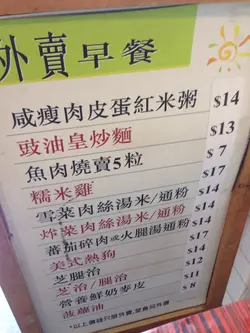 外賣早餐
咸瘦肉皮蛋紅米粥 $14
豉油皇炒麵 $13
魚肉燒賣5粒 $7
糯米雞 $17
雪菜肉絲湯米/通粉 $14
炸菜肉絲湯米/通粉 $14
蕃茄碎肉或火腿湯通粉 $14
美式熱狗 $17
芝腿治 $14
芝治/腿治 $12
營養鮮奶麥皮 $11
菠蘿油 $8
*以上價錢只限外賣,堂食另